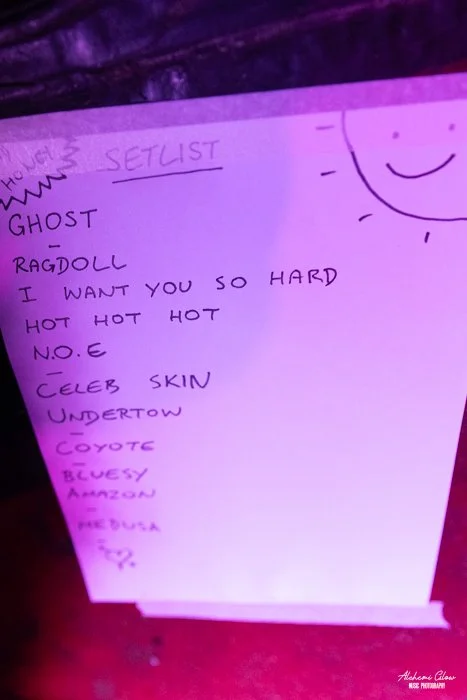 SETLIST
GHOST
RAGDOLL
I WANT YOU SO HARD
HOT HOT HOT
N.O.E
CELEB SKIN
UNDERTOW
COYOTE
BLUESY
AMAZON
MEDUSA
Alchemi Glow
MUSIC PHOTOGRAPHY